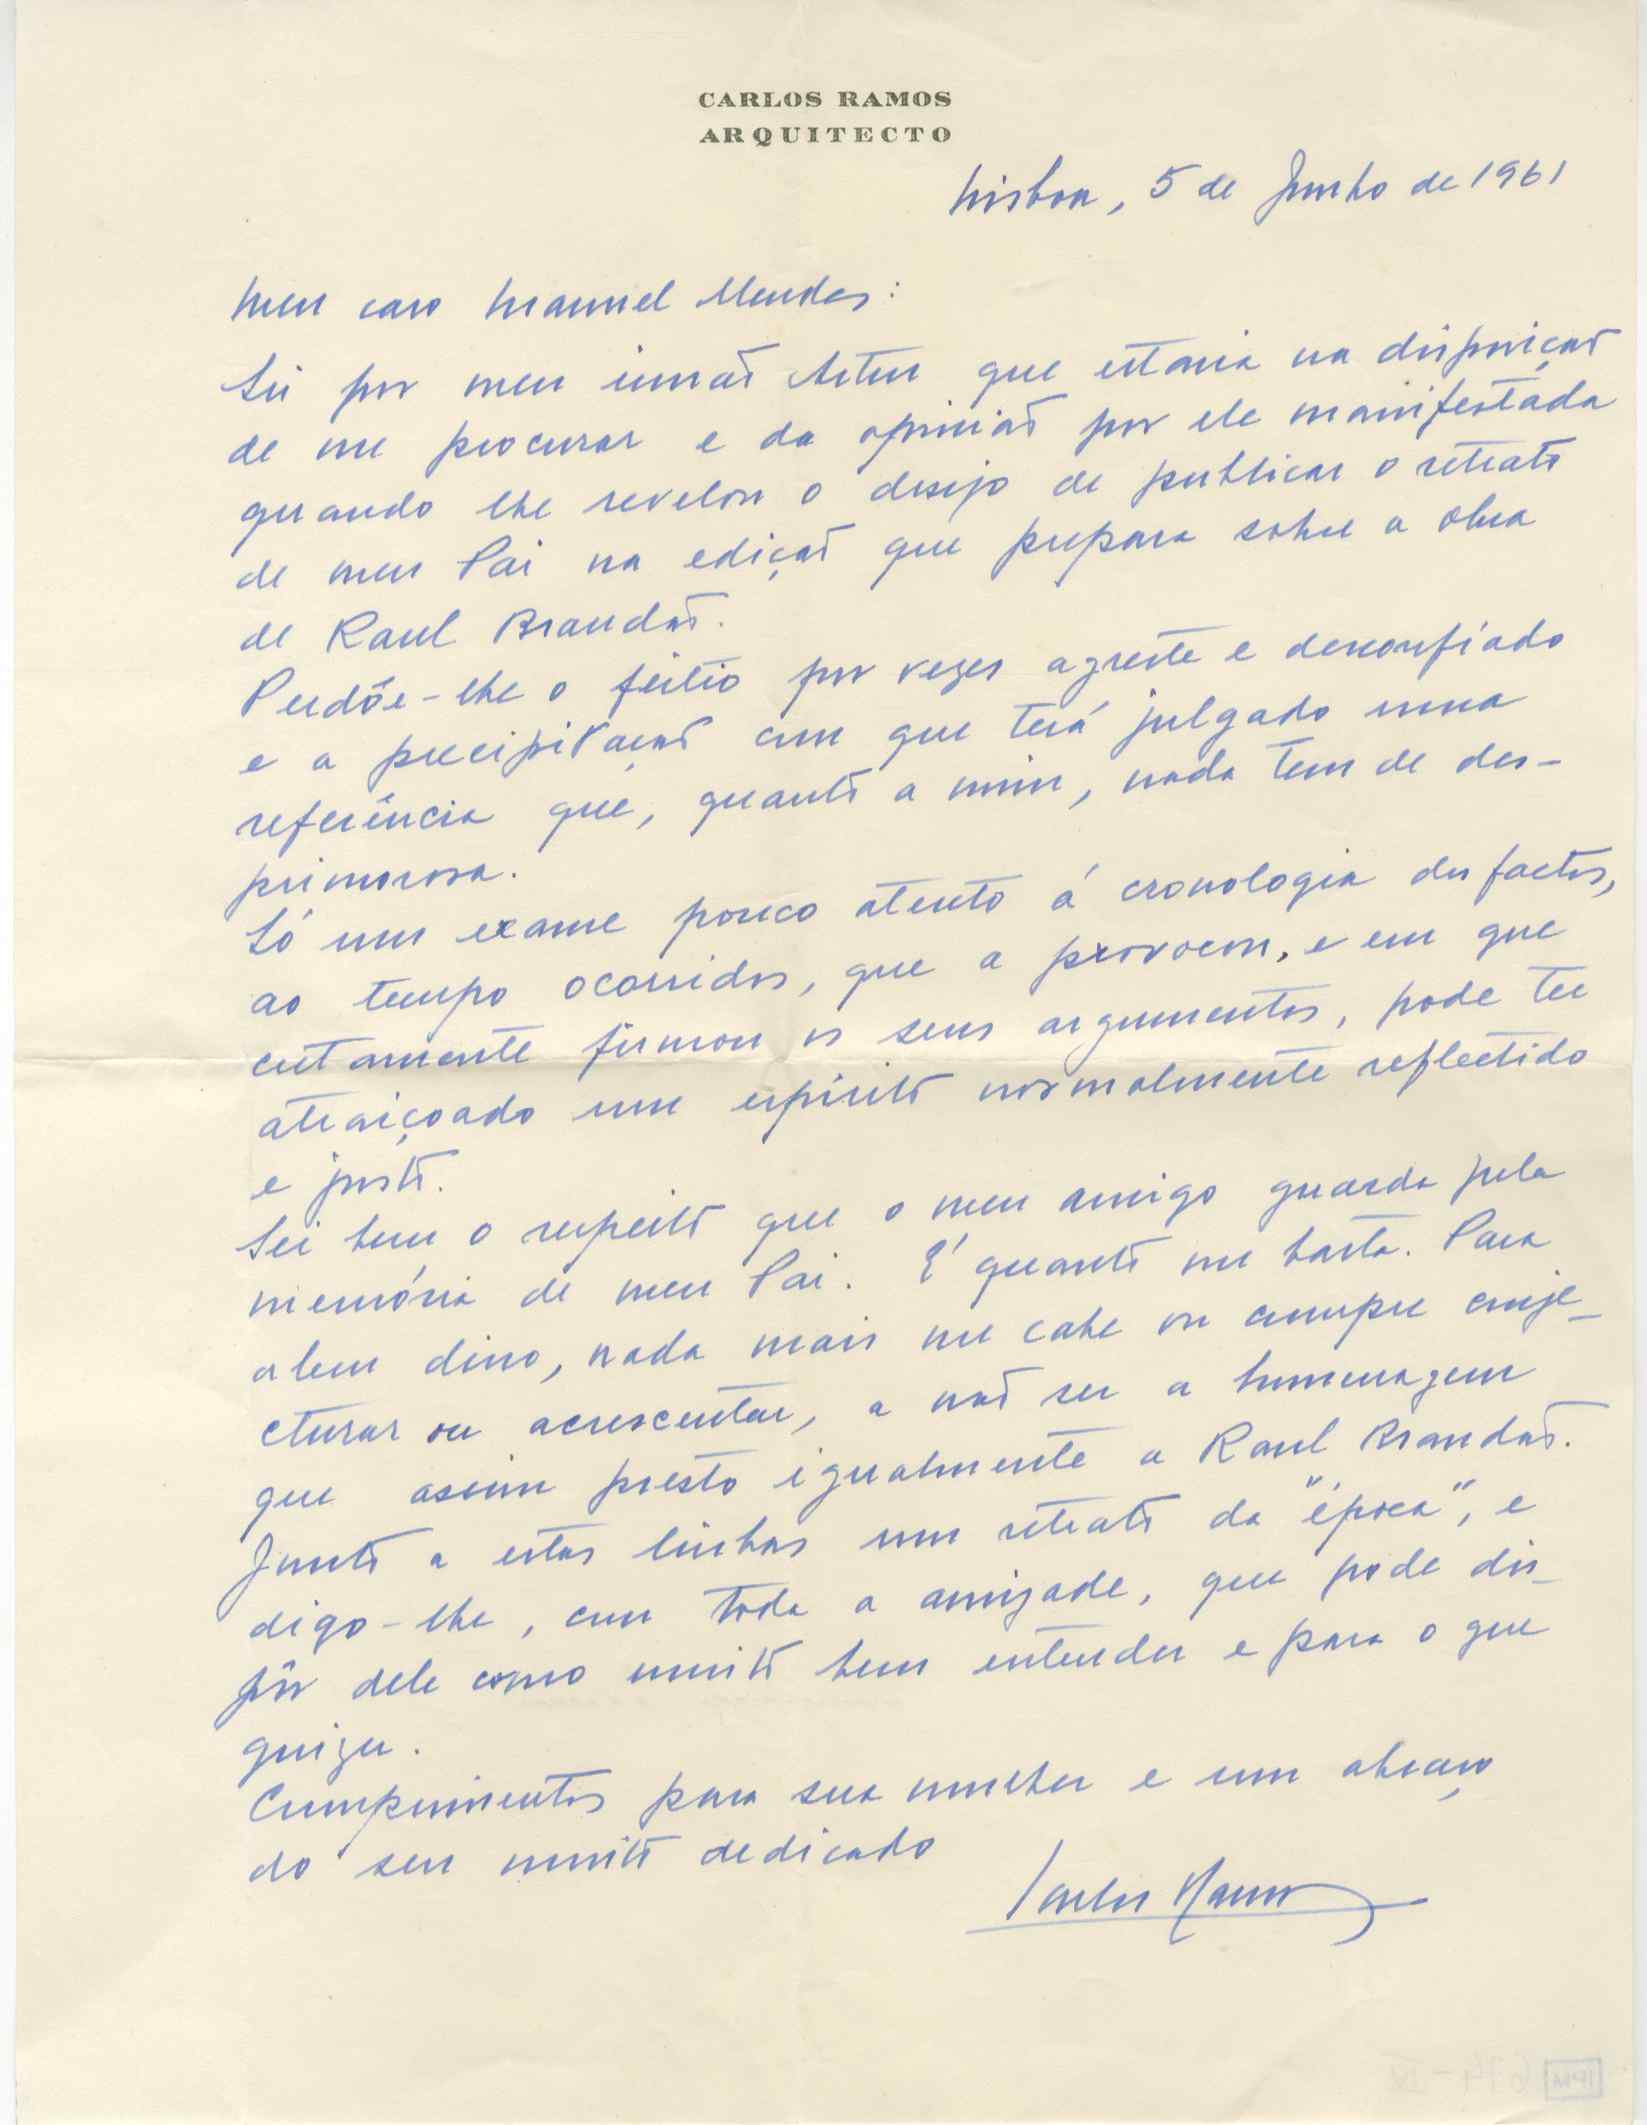 CARLOS RAMOS
ARQUITECTO
Lisboa, 5 de Junho de 1961
Meu caro Manuel Mendes:
Sei por meu irmão Artur que estaria na disposição
de me procurar e da opinião por ele manifestada
quando lhe revelou o desejo de publicar o retrato
de meu Pai na edição que prepara sobre a obra
de Raul Brandão.
Perdôe-lhe o feitio por vezes agreste e desconfiado
e a precipitação com que terá julgado uma
referência que, quanto a mim, nada tem de des-
primorosa.
Só um exame pouco atento á cronologia dos factos,
ao tempo ocorridos, que a provocou, e em que
certamente firmou os seus argumentos, pode ter
atraiçoado um espírito normalmente reflectido
e justo.
Sei bem o respeito que o meu amigo guarda pela
memória de meu Pai. É quanto me basta. Para
alem disso, nada mais me cabe ou cumpre conje-
cturar ou acrescentar, a não ser a homenagem
que assim presto igualmente a Raul Brandão.
Junto a estas linhas um retrato da "época", e
digo-lhe, com toda a amizade, que pode dis-
pôr dele como muito bem entender e para o que
quizer.
Cumprimentos para sua mulher e um abraço
do seu muito dedicado
Carlos Ramos